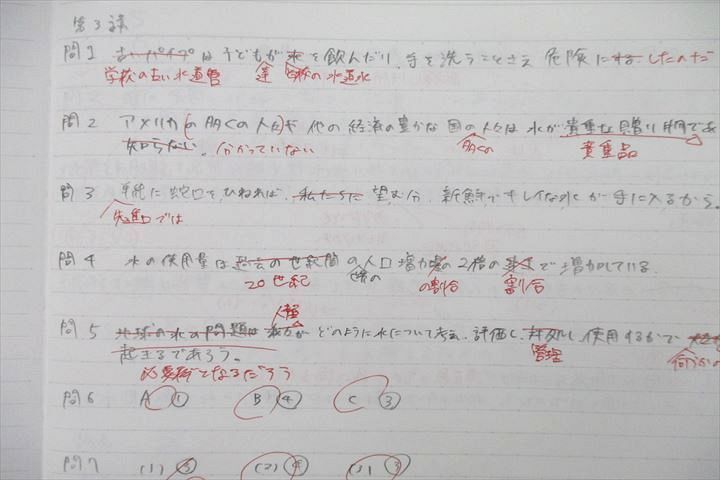 第3講
問1 古いパイプは子どもが水を飲んだり、手を洗うことさえ危険にする したのだ
学校の古い水道管 達 学校の水道水
問2 アメリカ(の多くの人々)や他の経済の豊かな国の人々は水が貴重な贈り物であ
知らない。分かっていない 多くの 貴重品
問3 単純に蛇口をひねれば、私たちは望む分、新鮮でキレイな水が手に入るから。
先進国では
問4 水の使用量は過去の世紀間の人口増加の2倍の速さで増加している。
20世紀 世界の の割合 割合
問5 地球の水の問題は 人類 がどのように水について考え、評価し、使用するかで
起きるであろう。管理
必要
問6 A ① B ④ C ③
問7 (1) ③ (2) ④ (3) ③